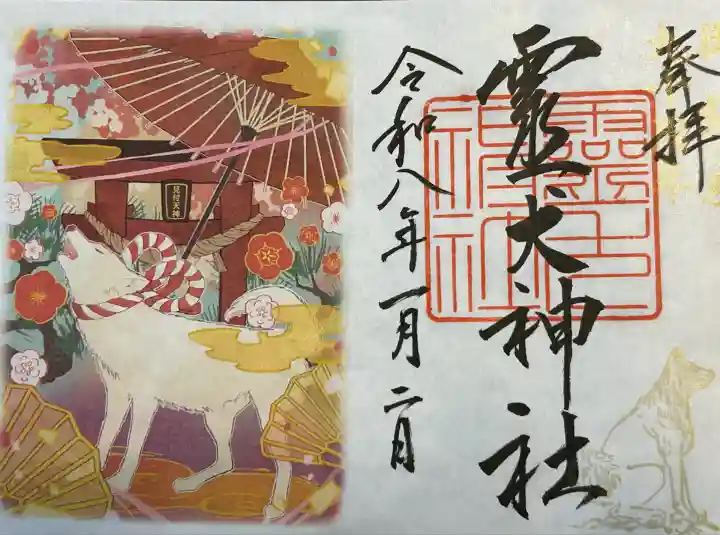 奉拝
霊犬神社
令和八年一月二日
見付天神